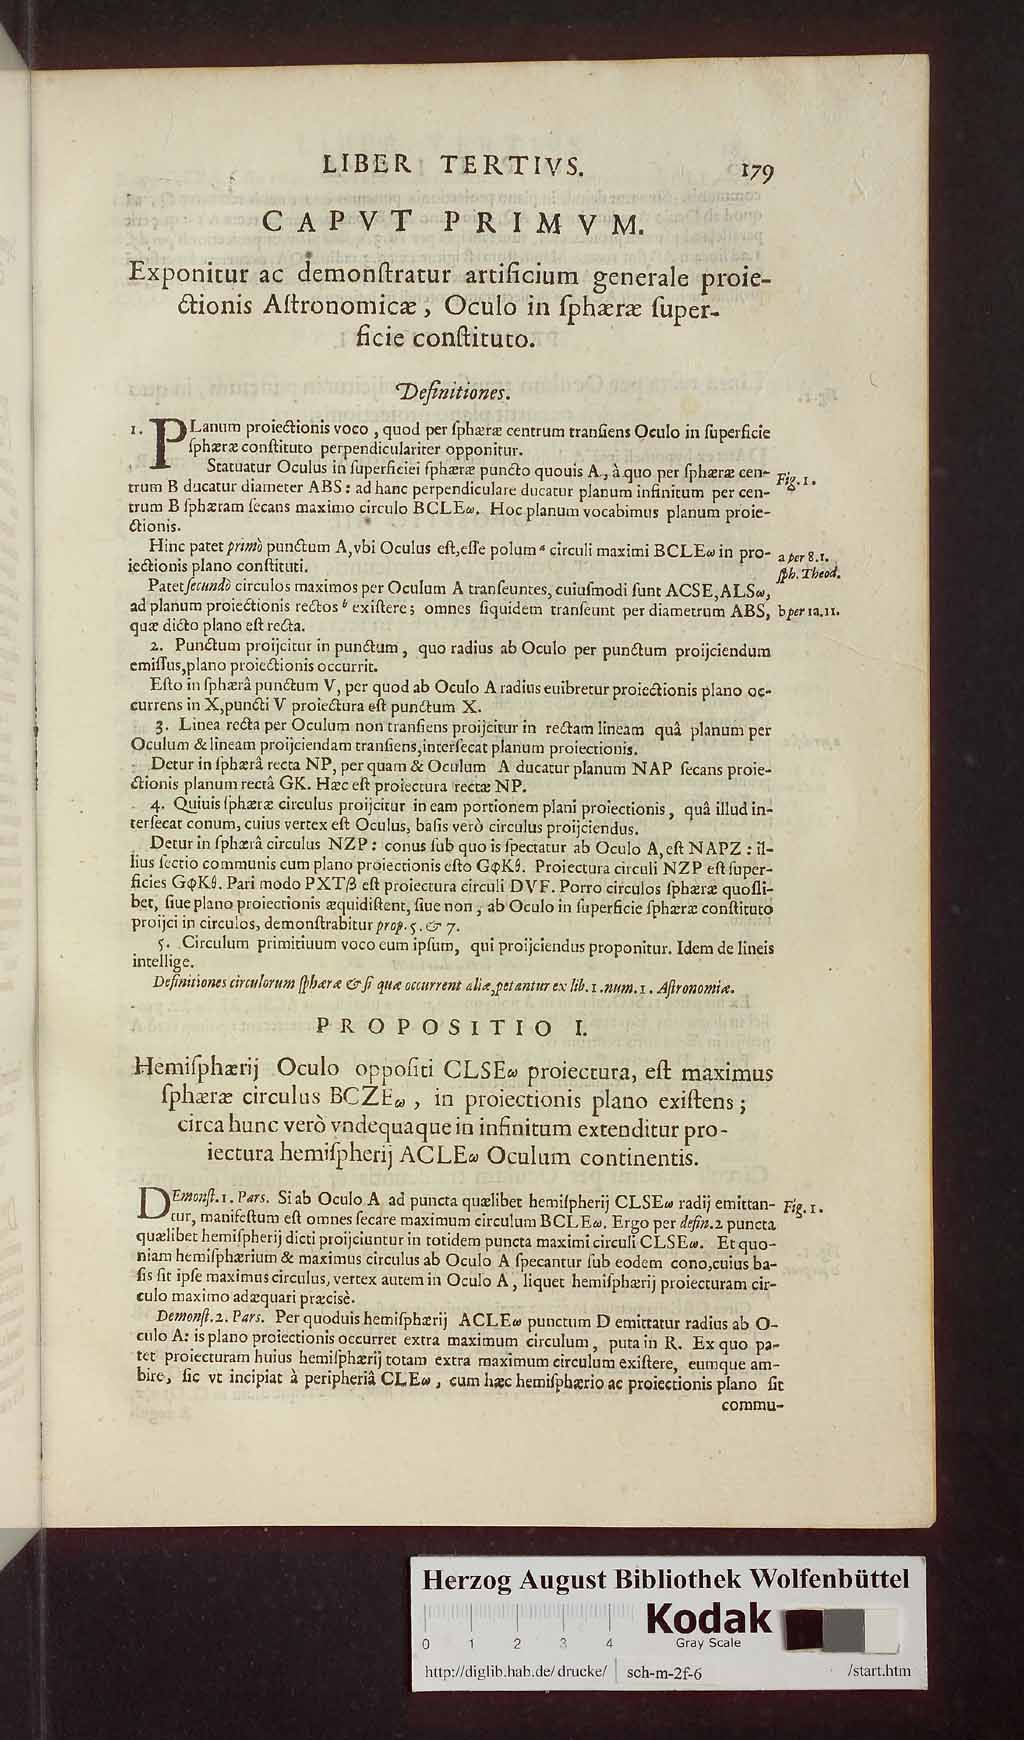 LIBER TERTIVS. 179
CAPVT PRIMVM.
Exponitur ac demonſtratur artificium generale proie-
ctionis Aſtronomicæ, Oculo in ſphæræ ſuper-
ficie conſtituto.
Definitiones.
1. PLanum proiectionis voco, quod per ſphæræ centrum tranſiens Oculo in ſuperficie
ſphæræ conſtituto perpendiculariter opponitur.
Statuatur Oculus in ſuperficiei ſphæræ puncto quouis A, à quo per ſphæræ cen- Fig. 1.
trum B ducatur diameter ABS: ad hanc perpendiculare ducatur planum infinitum per cen-
trum B ſphæram ſecans maximo circulo BCLEω. Hoc planum vocabimus planum proie-
ctionis.
Hinc patet primò punctum A, vbi Oculus eſt, eſſe polum a circuli maximi BCLEω in pro- a per 8. 1.
iectionis plano conſtituti. ſph. Theod.
Patet ſecundò circulos maximos per Oculum A tranſeuntes, cuiuſmodi ſunt ACSE, ALSω,
ad planum proiectionis rectos b exiſtere; omnes ſiquidem tranſeunt per diametrum ABS, b per 12. 11.
quæ dicto plano eſt recta.
2. Punctum proijcitur in punctum, quo radius ab Oculo per punctum proijciendum
emiſſus, plano proiectionis occurrit.
Eſto in ſphærâ punctum V, per quod ab Oculo A radius euibretur proiectionis plano oc-
currens in X, puncti V proiectura eſt punctum X.
3. Linea recta per Oculum non tranſiens proijcitur in rectam lineam quâ planum per
Oculum & lineam proijciendam tranſiens, interſecat planum proiectionis.
Detur in ſphærâ recta NP, per quam & Oculum A ducatur planum NAP ſecans proie-
ctionis planum rectâ GK. Hæc eſt proiectura rectæ NP.
4. Quiuis ſphæræ circulus proijcitur in eam portionem plani proiectionis, quâ illud in-
terſecat conum, cuius vertex eſt Oculus, baſis verò circulus proijciendus.
Detur in ſphærâ circulus NZP: conus ſub quo is ſpectatur ab Oculo A, eſt NAPZ: il-
lius ſectio communis cum plano proiectionis eſto GφKθ. Proiectura circuli NZP eſt ſuper-
ficies GφKθ. Pari modo PXTβ eſt proiectura circuli DVF. Porro circulos ſphæræ quoſli-
bet, ſiue plano proiectionis æquidiſtent, ſiue non, ab Oculo in ſuperficie ſphæræ conſtituto
proijci in circulos, demonſtrabitur prop. 5. & 7.
5. Circulum primitiuum voco eum ipſum, qui proijciendus proponitur. Idem de lineis
intellige.
Definitiones circulorum ſphæræ & ſi quæ occurrent aliæ, petantur ex lib. 1. num. 1. Aſtronomiæ.
PROPOSITIO I.
Hemiſphærij Oculo oppoſiti CLSEω proiectura, eſt maximus
ſphæræ circulus BCZEω, in proiectionis plano exiſtens;
circa hunc verò vndequaque in infinitum extenditur pro-
iectura hemiſpherij ACLEω Oculum continentis.
DEmonſt. 1. Pars. Si ab Oculo A ad puncta quælibet hemiſpherij CLSEω radij emittan- Fig. 1.
tur, manifeſtum eſt omnes ſecare maximum circulum BCLEω. Ergo per defin. 2 puncta
quælibet hemiſpherij dicti proijciuntur in totidem puncta maximi circuli CLSEω. Et quo-
niam hemiſphærium & maximus circulus ab Oculo A ſpecantur ſub eodem cono, cuius ba-
ſis ſit ipſe maximus circulus, vertex autem in Oculo A, liquet hemiſphærij proiecturam cir-
culo maximo adæquari præcisè.
Demonſt. 2. Pars. Per quoduis hemiſphærij ACLEω punctum D emittatur radius ab O-
culo A: is plano proiectionis occurret extra maximum circulum, puta in R. Ex quo pa-
tet proiecturam huius hemiſphærij totam extra maximum circulum exiſtere, eumque am-
bire, ſic vt incipiat à peripheriâ CLEω, cum hæc hemiſphærio ac proiectionis plano ſit
commu-
Herzog August Bibliothek Wolfenbüttel
Kodak
0 1 2 3 4 Gray Scale
http://diglib.hab.de/drucke/ sch-m-2f-6 /start.htm